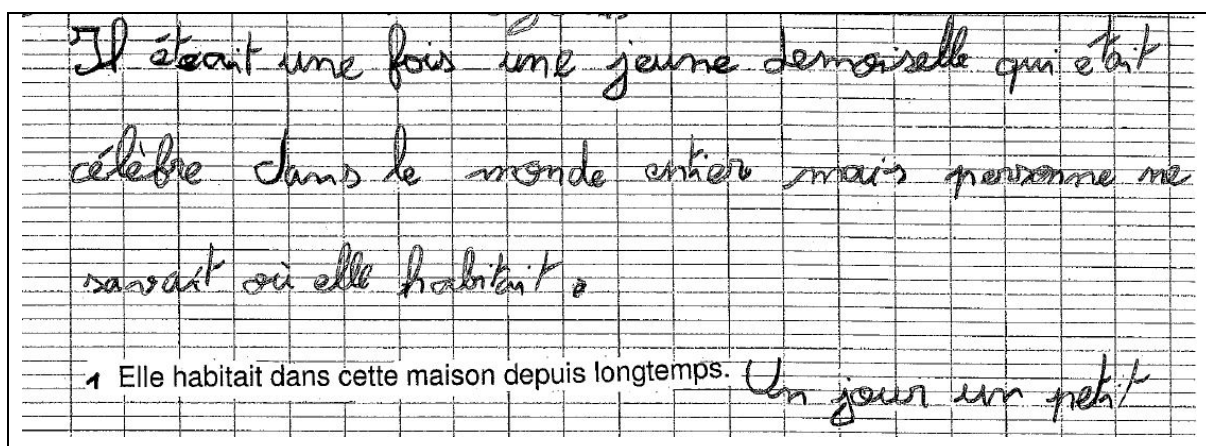 Il éteait une fois une jeune demoiselle qui était
célèbre dans le monde entier mais personne ne
savait où elle habitait.
1 Elle habitait dans cette maison depuis longtemps. Un jour un petit